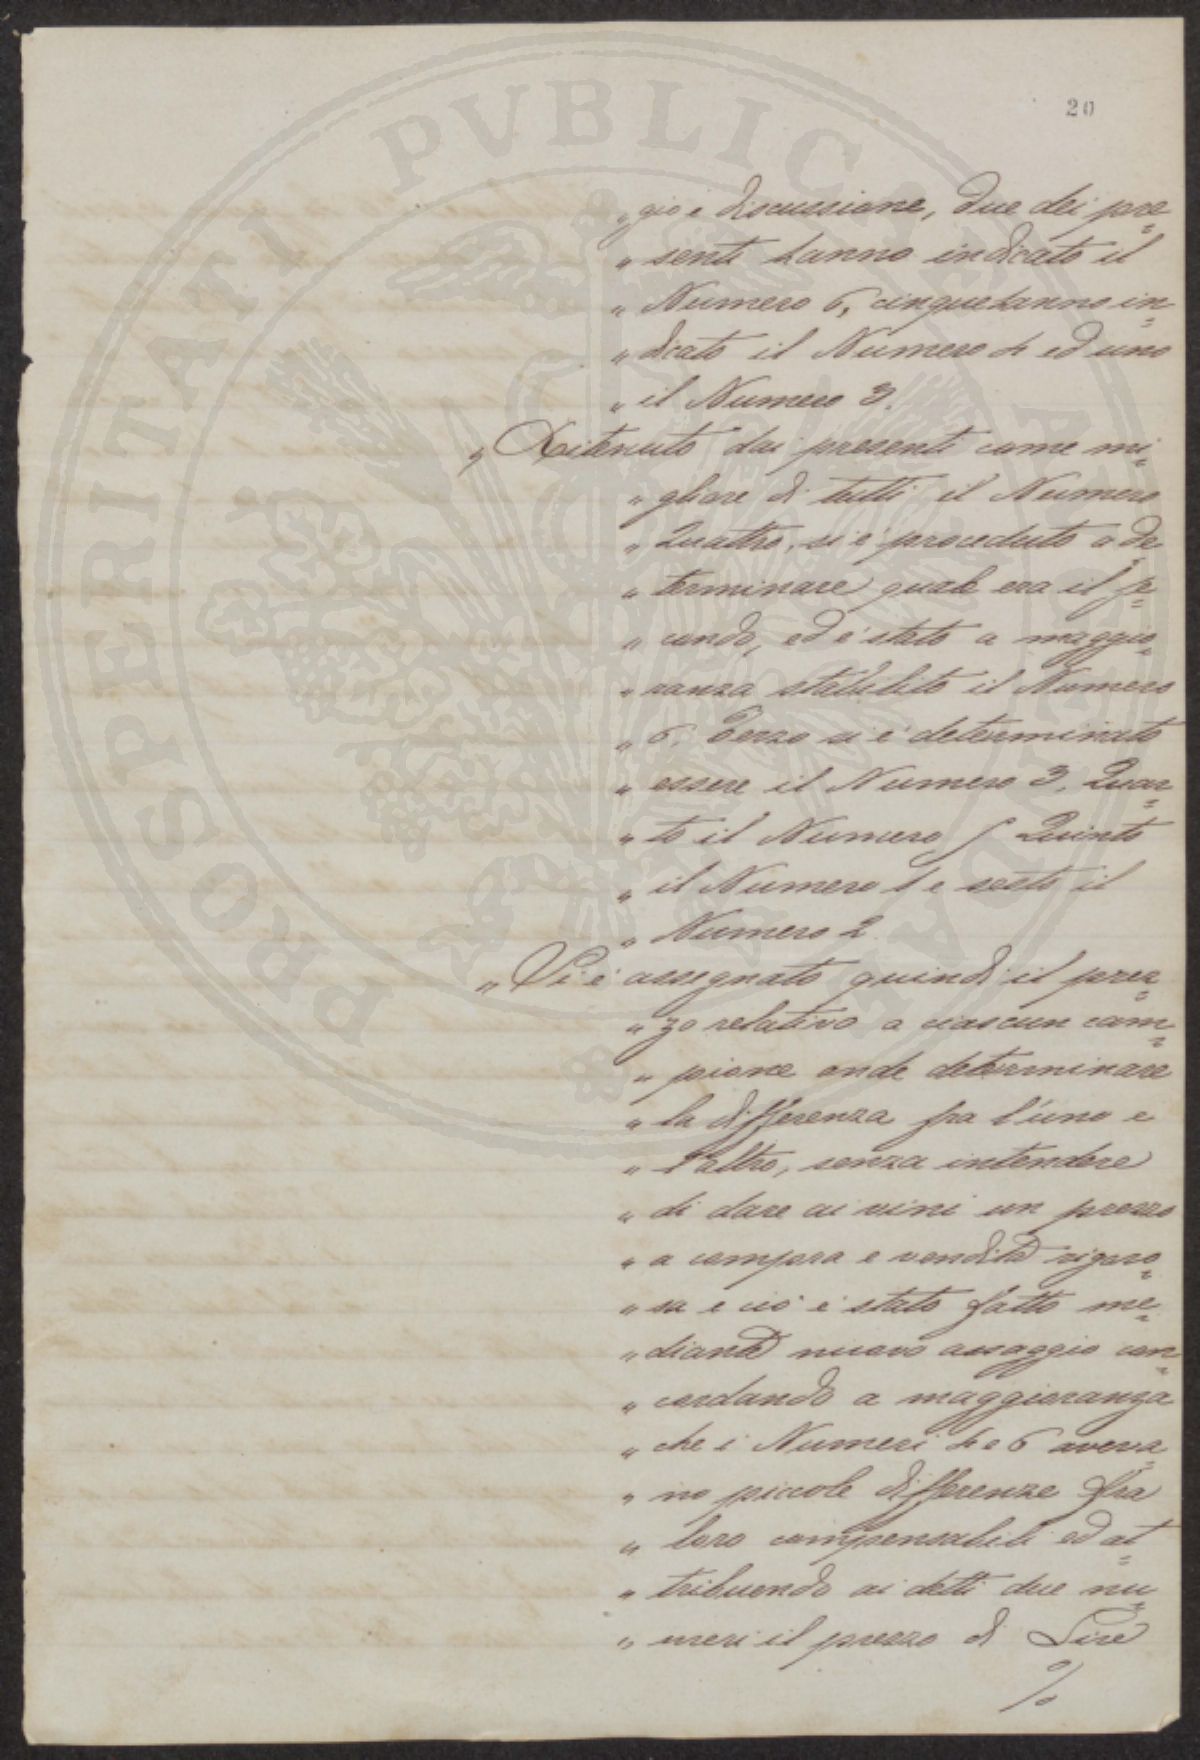 20
„ gio e discussione, due dei pre=
„ senti hanno indicato il
„ Numero 6, cinque hanno in=
„ dicato il Numero 4 ed uno
„ il Numero 3.
„ Ritenuto dai presenti come mi=
„ gliore di tutti il Numero
„ Quattro, si è proceduto a de=
„ terminare quale era il se=
„ condo, ed è stato a maggio=
„ ranza stabilito il Numero
„ 6. Terzo si è determinato
„ essere il Numero 3. Quar=
„ to il Numero 5 Quinto
„ il Numero 1 e sesto il
„ Numero 2.
„ Si è assegnato quindi il prez=
„ zo relativo a ciascun cam=
„ pione onde determinare
„ la differenza fra l'uno e
„ l'altro, senza intendere
„ di dare ai vini un prezzo
„ a compra e vendita rigoro=
„ sa e ciò è stato fatto me=
„ diante nuovo assaggio con=
„ cordando a maggioranza
„ che i Numeri 4 e 6 aveva=
„ no piccole differenze fra
„ loro compensabili ed at=
„ tribuendo ai detti due nu=
„ meri il prezzo di Lire
%
PROSPERITATI PVBLICAE AVGENDAE